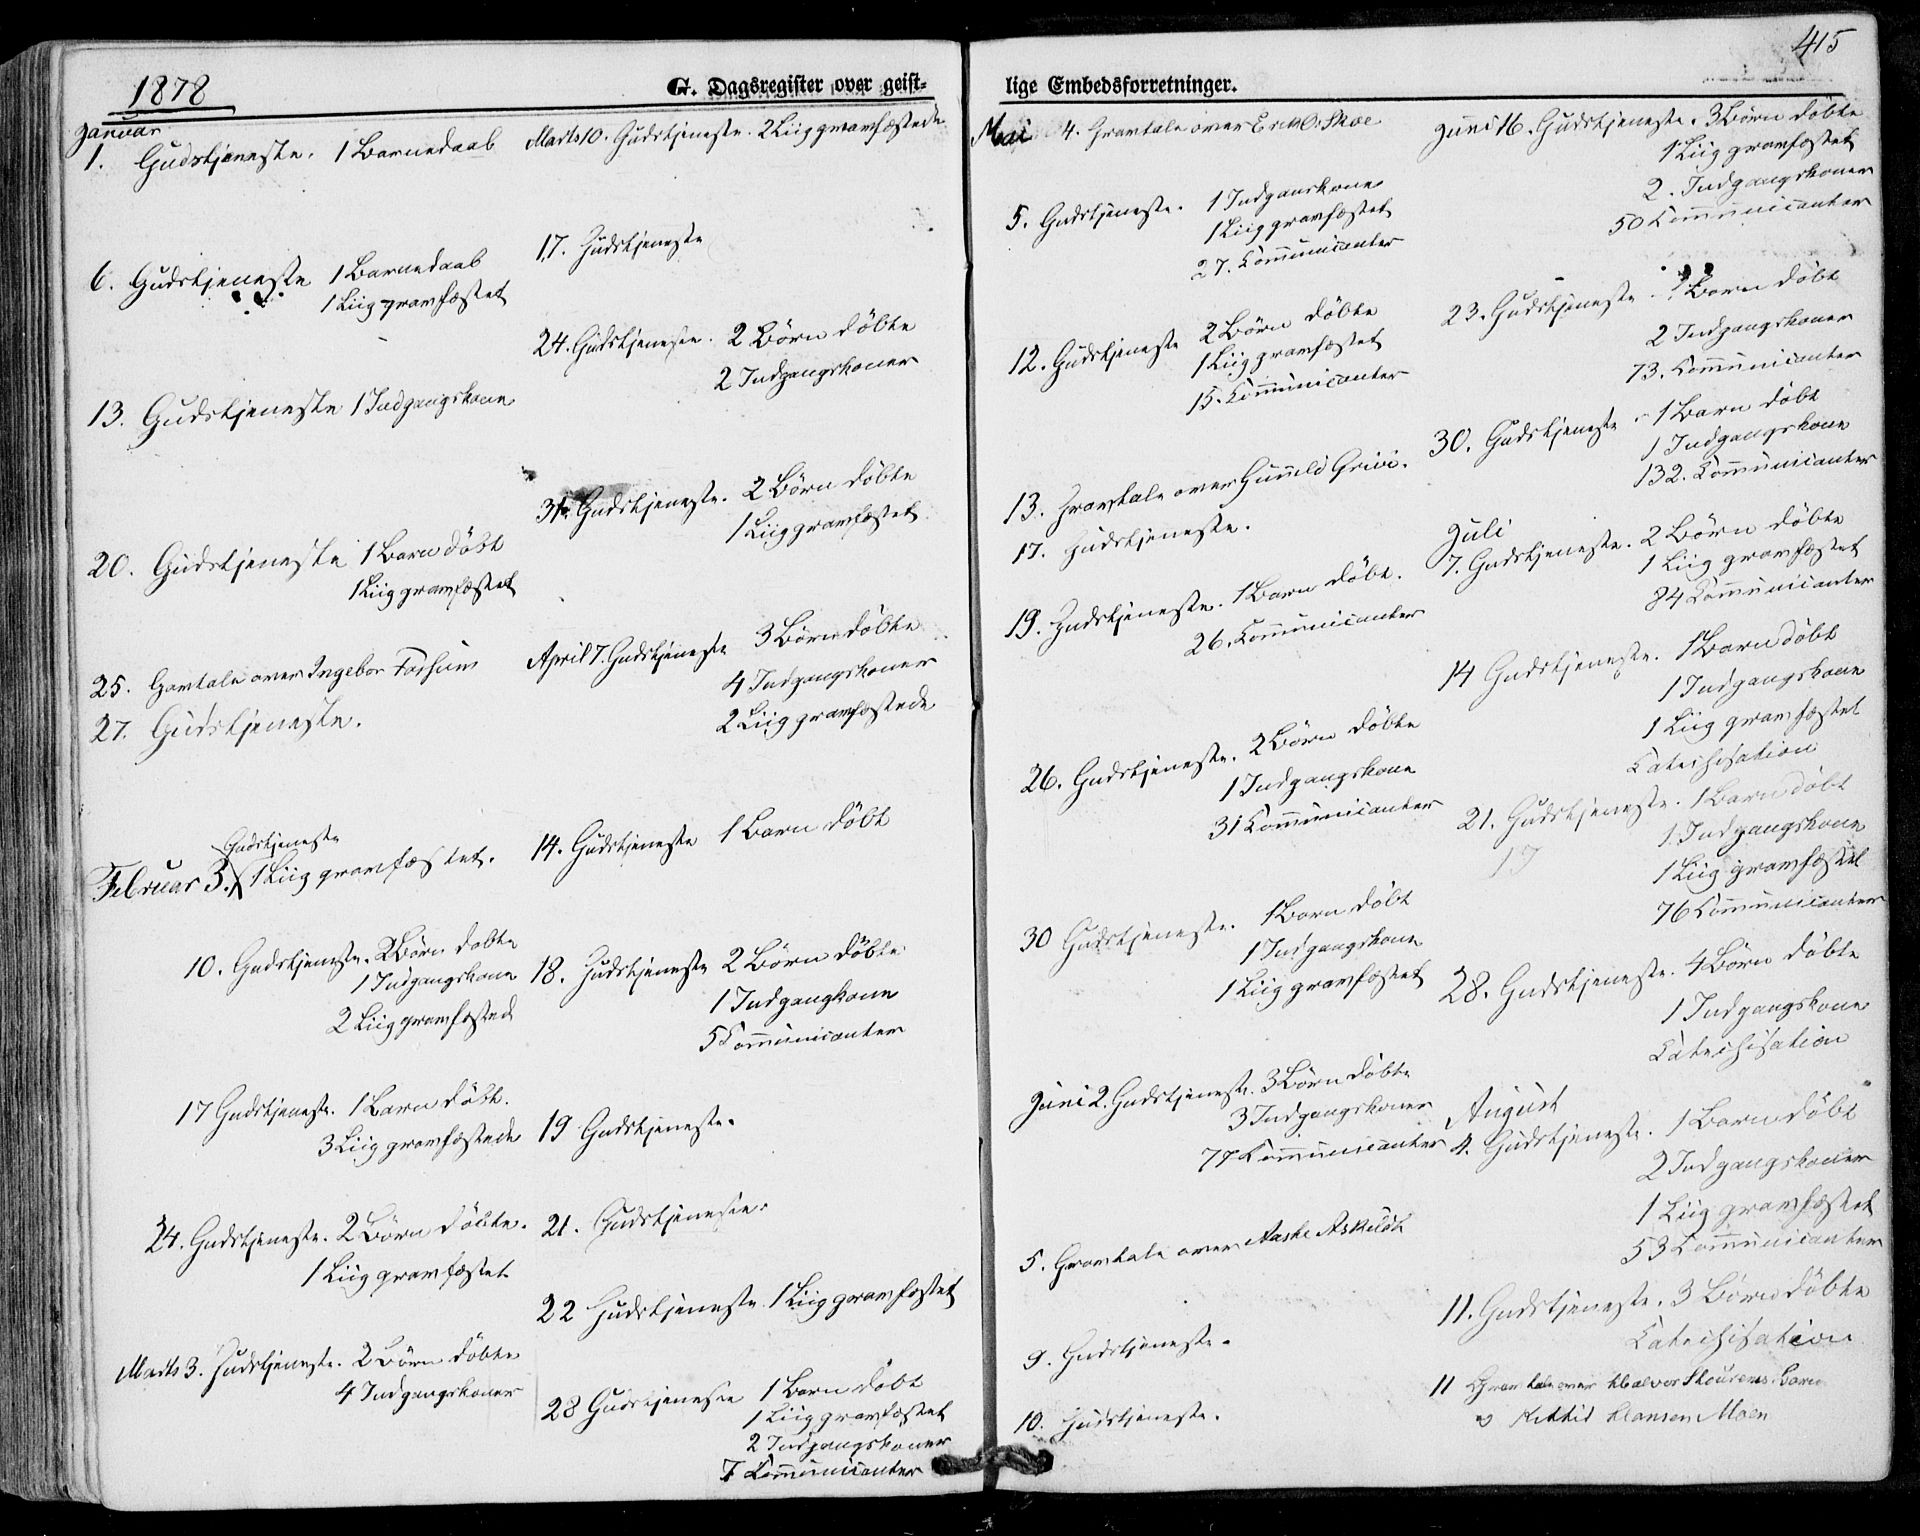 1878
G. Dagsregister over geist-
Januar
1. Gudstjeneste. 1 Barnedaab
6. Gudstjeneste 1 Barnedaab
1 Liig gravfæstet
13. Gudstjeneste 1 Indgangskone
20. Gudstjeneste 1 Barn døbt
1 Liig gravfæstet
25. Gravtale over Ingebor Fossum
27. Gudstjeneste.
Gudstjeneste
Februar 3. 1 Liig gravfæstet.
10. Gudstjeneste. 2 Børn døbte
1 Indgangskone
2 Liig gravfæstede
17 Gudstjeneste. 1 Barn døbt.
3 Liig gravfæstede
24. Gudstjeneste. 2 Børn døbte.
1 Liig gravfæstet
Marts 3. Gudstjeneste. 2 Børn døbte
4 Indgangskoner
Marts 10. Gudstjeneste. 2 Liig gravfæstede
17. Gudstjeneste
24. Gudstjeneste. 2 Børn døbte
2 Indgangskoner
31. Gudstjeneste. 2 Børn døbte
1 Liig gravfæstet
April 7. Gudstjeneste 3 Børn døbte
4 Indgangskoner
2 Liig gravfæstede
14. Gudstjeneste 1 Barn døbt
18. Gudstjeneste 2 Børn døbte
1 Indgangkone
5 Communicanter
19 Gudstjeneste.
21. Gudstjeneste.
22 Gudstjeneste. 1 Liig gravfæstet
28 Gudstjeneste 1 Barn døbt
1 Liig gravfæstet
2 Indgangskoner
7 Communicanter
415
lige Embedsforretninger.
Mai 4. Gravtale over Erik O. Skoe
5. Gudstjeneste. 1 Indganskone
1 Liig gravfæstet
27. Communicanter
12. Gudstjeneste 2 Børn døbte
1 Liig gravfæstet
15. Communicanter
13. Gravtale over Gunild
17. Gudstjeneste.
19. Gudstjeneste. 1 Barn døbt.
26. Communicanter
26. Gudstjeneste. 2 Børn døbte
1 Indgangskone
31 Communicanter
30 Gudstjeneste. 1 Barn døbt
1 Indgangskone
1 Liig gravfæstet
Juni 2. Gudstjeneste. 3 Børn døbte
3 Indgangskoner
77 Communicanter
5. Gravtale over Aaste
9. Gudstjeneste.
10. Gudstjeneste.
Juni 16. Gudstjeneste. 3 Børn døbte
1 Liig gravfæstet
2. Indgangskoner
50 Communicanter
23. Gudstjeneste. Børn døbt
2 Indgangskoner
73. Communicanter
30. Gudstjeneste. 1 Barn døbt
1 Indgangskone
132. Communicanter
Juli
7. Gudstjeneste. 2 Børn døbte
1 Liig gravfæstet
84 Communicanter
14 Gudstjeneste. 1 Barn døbt
1 Indgangskone
1 Liig gravfæstet
Catechisation
21. Gudstjeneste. 1 Barn døbt
1 Indgangskone
17
1 Liig gravfæstet
76 Communicanter
28. Gudstjeneste. 4 Børn døbte
1 Indgangskone
Catechisation
August
4. Gudstjeneste. 1 Barn døbt
2 Indgangskoner
1 Liig gravfæstet
53 Communicanter
11. Gudstjeneste. 3 Børn døbte
Catechisation
11 Gravtale over Halvor Barn
Hansen Moen